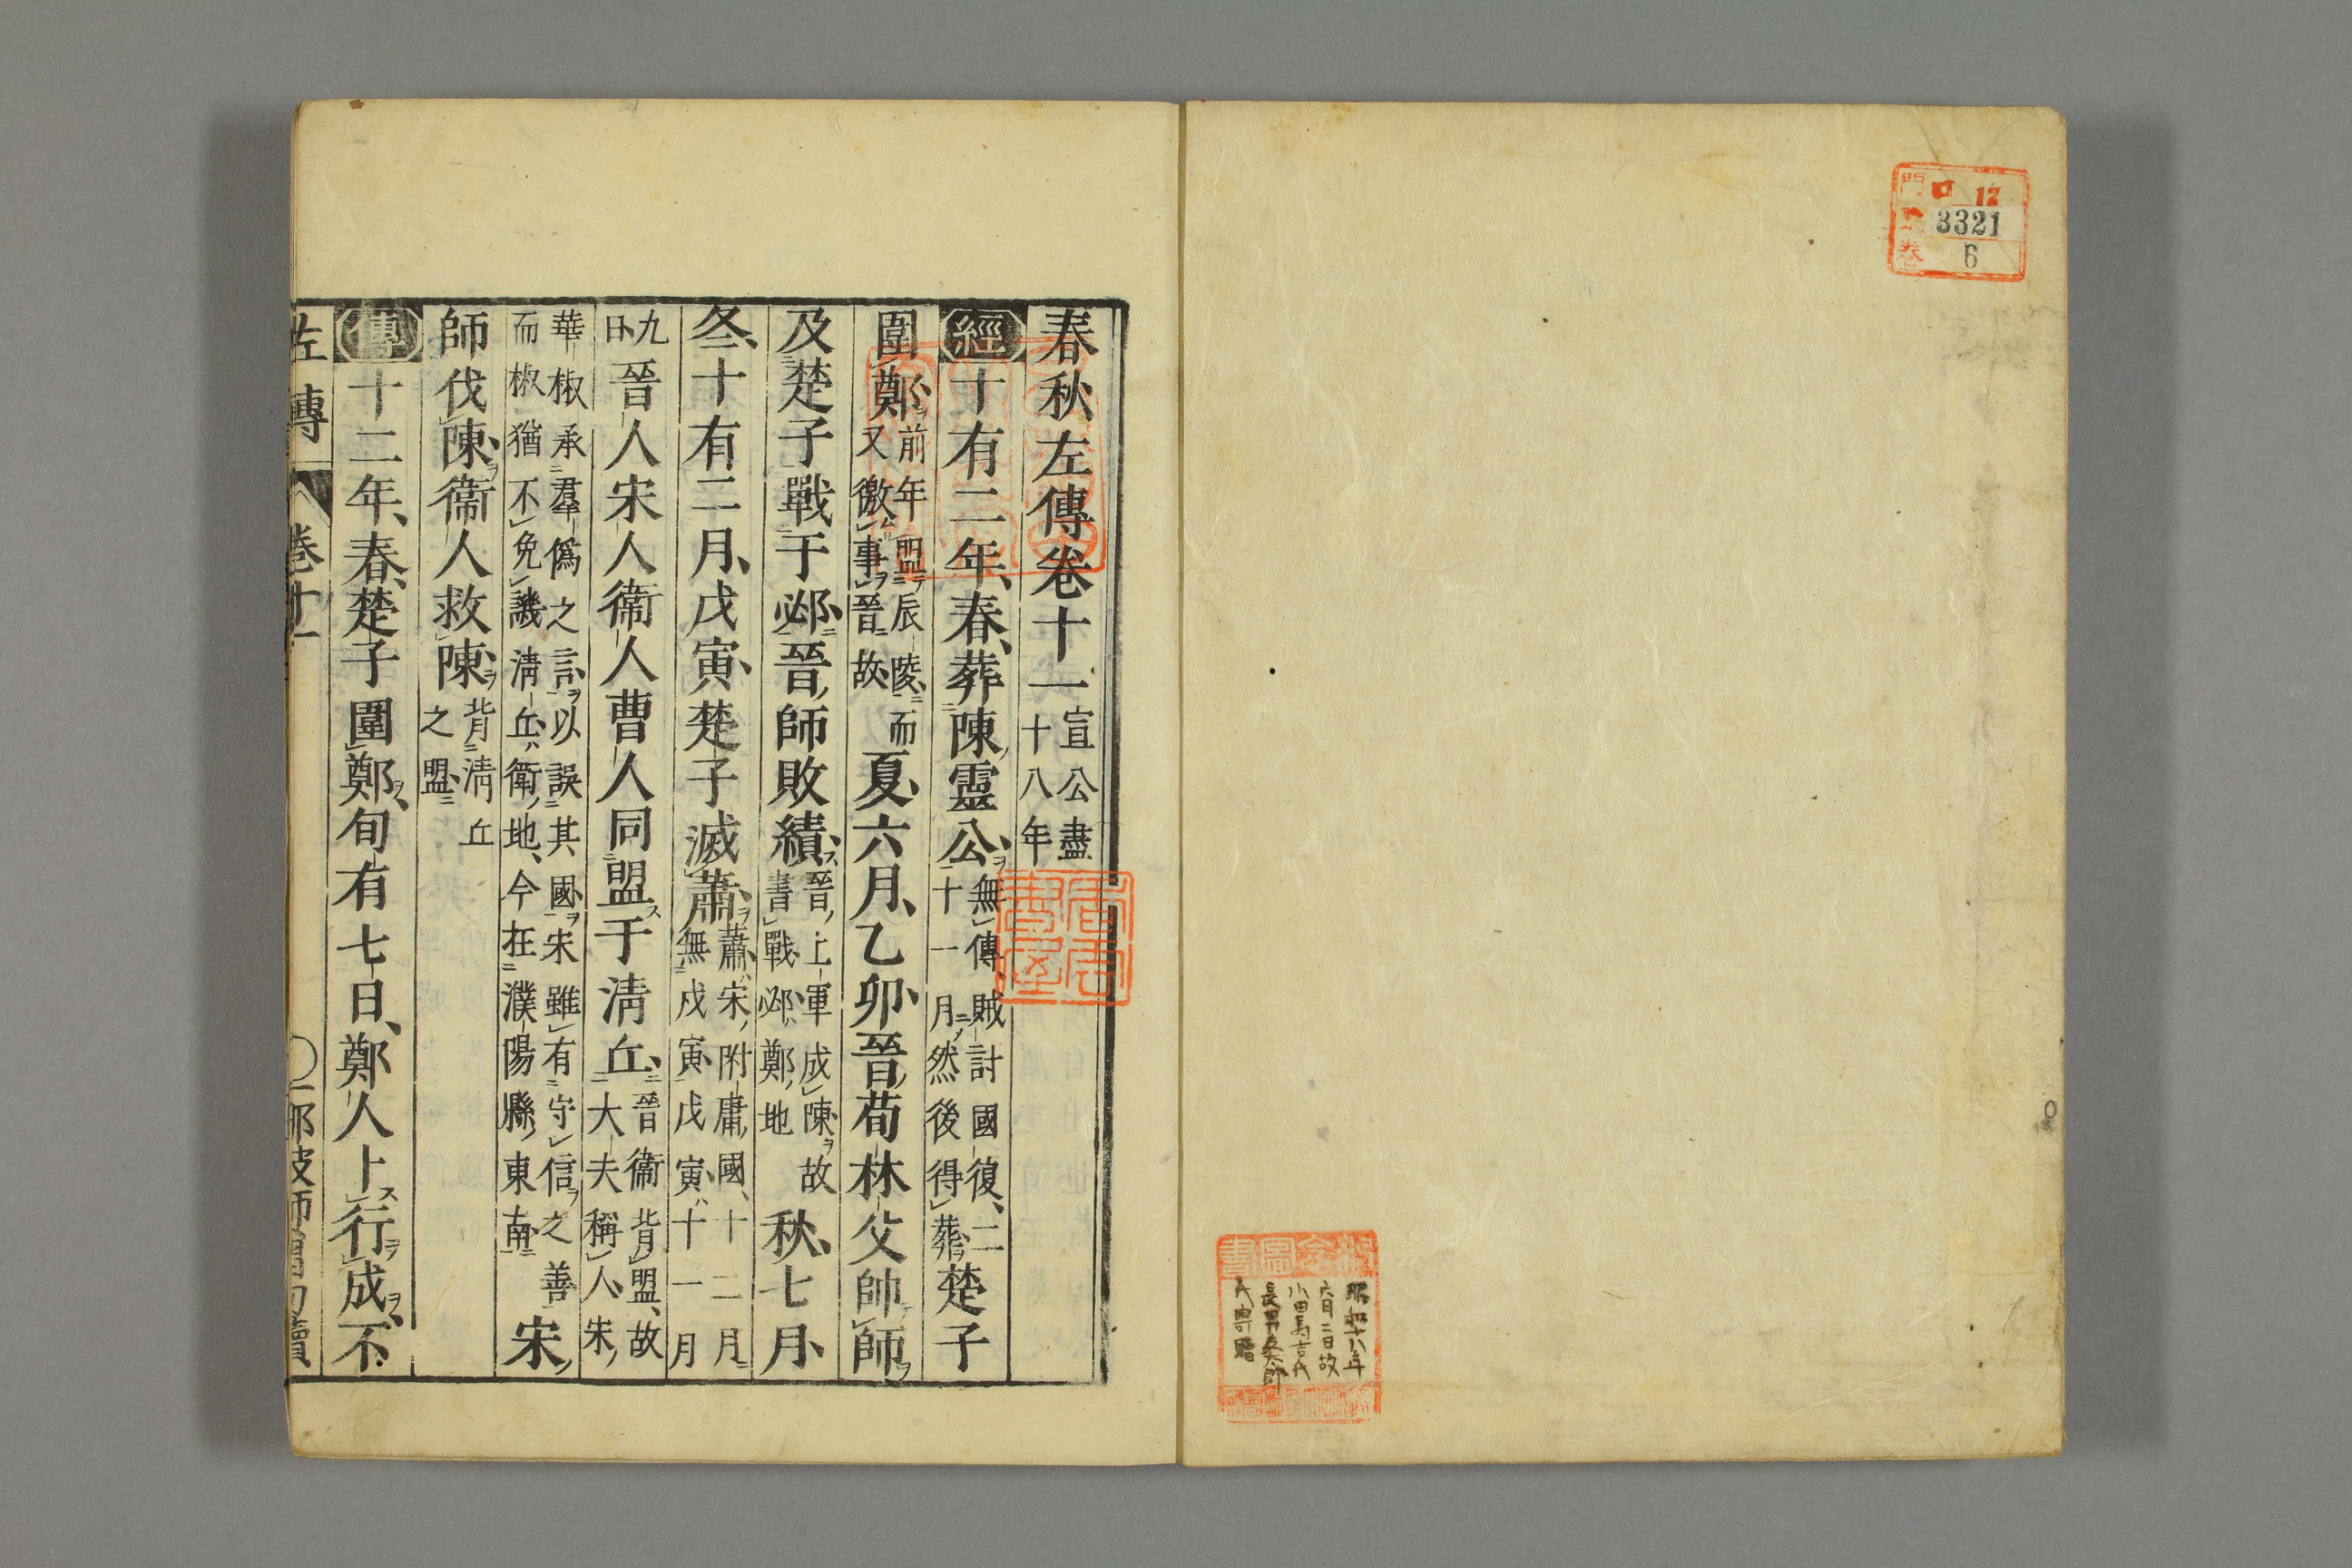 門 ロ 12
號 3321
卷 6
昭和十八年
六月二日故
小田馬吉氏
長男
氏寄贈
春秋左傳卷十一 宣公盡十八年
經十有二年、春、葬陳靈公、無傳、賊討國復、二十一月、然後得葬、楚子
圍鄭、前年盟辰陵、而又徼事晉、故 夏、六月、乙卯、晉荀林父帥師
及楚子戰于邲、晉師敗績、晉上軍成陳故書戰、邲、鄭地 秋、七月、
冬、十有二月、戊寅、楚子滅蕭、蕭、宋附庸國、十二月無戊寅、戊寅、十一月
九日 晉人宋人衞人曹人同盟于淸丘、晉衞背盟、故大夫稱人、宋
華椒承羣僞之言、以誤其國、宋雖有守信之善而椒猶不免譏、淸丘、衞地、今在濮陽縣東南 宋
師伐陳、衞人救陳、背淸丘之盟
傳十二年、春、楚子圍鄭、旬有七日、鄭人卜行成、不
左傳 卷十一 〇一 那波師曾句讀